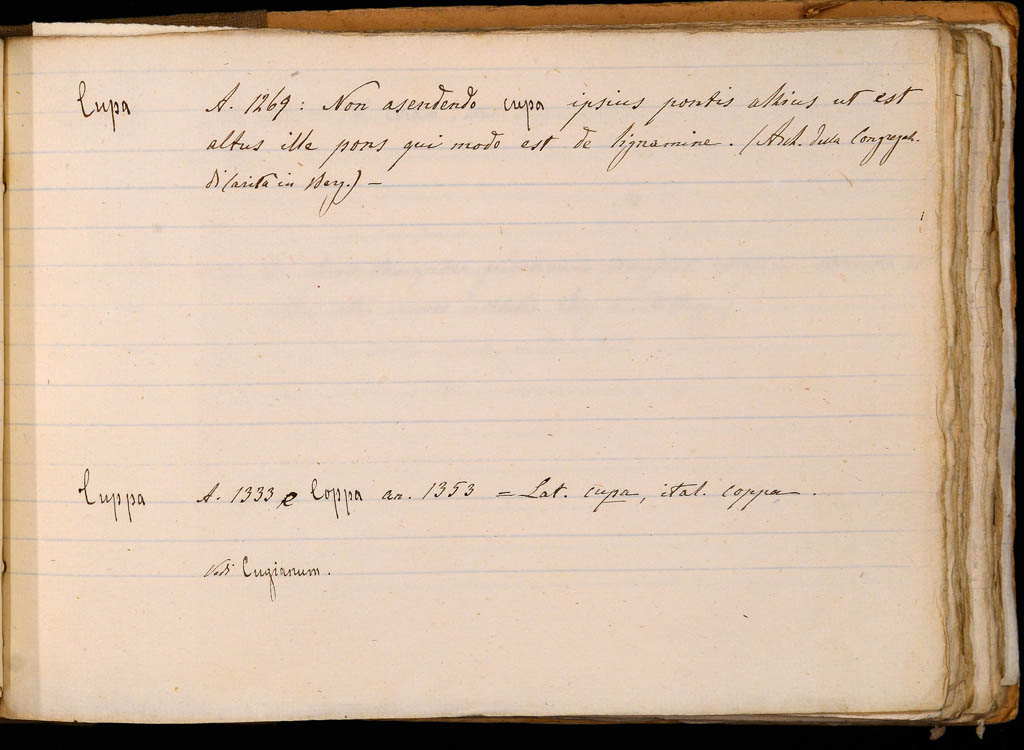 Cupa A. 1269: Non asendendo cupa ipsius pontis altius ut est
altus ille pons qui modo est de lignamine. (Arch. della Congregaz.
di Carità in Berg.) —
Cuppa A. 1333 e Coppa an. 1353 = Lat. cupa, ital. coppa.
Vedi Cugianum.